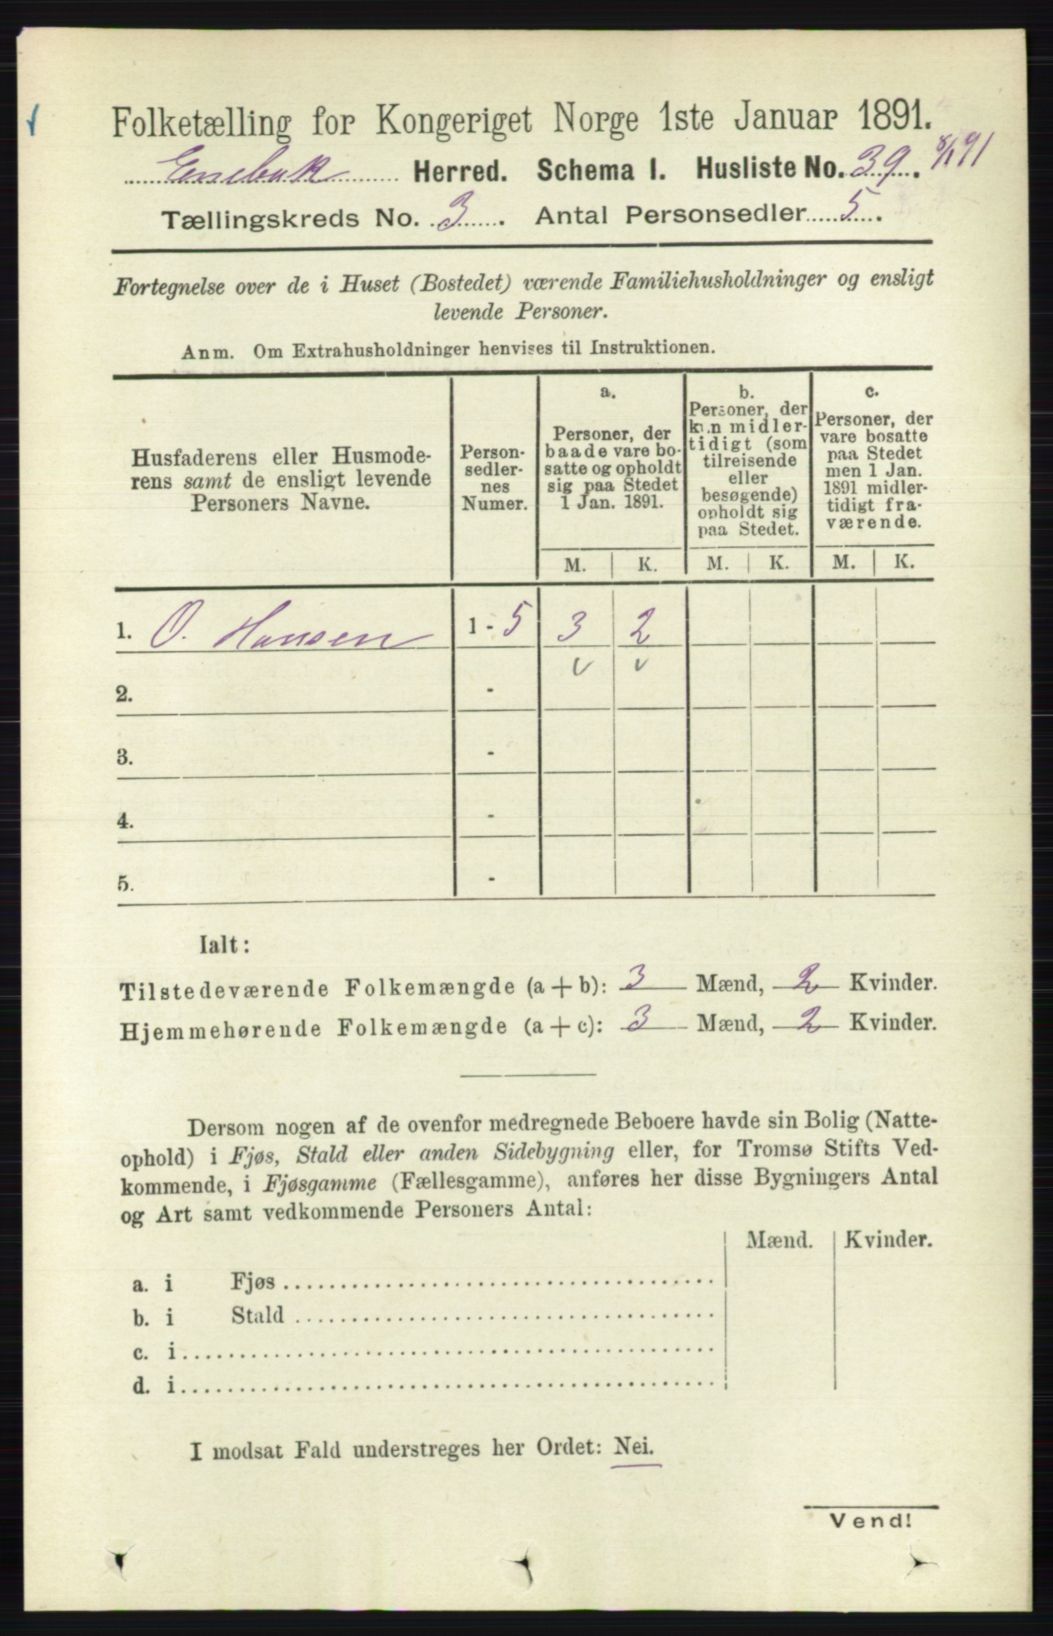 Folketælling for Kongeriget Norge 1ste Januar 1891.
Enebak Herred. Schema I. Husliste No. 39. 8/1 91
Tællingskreds No. 3. Antal Personsedler 5.
Fortegnelse over de i Huset (Bostedet) værende Familiehusholdninger og ensligt
levende Personer.
Anm. Om Extrahusholdninger henvises til Instruktionen.
Husfaderens eller Husmode-
rens samt de ensligt levende
Personers Navne.
Person-
sedler-
nes
Numer.
a.
Personer, der
baade vare bo-
satte og opholdt
sig paa Stedet
1 Jan. 1891.
b.
Personer, der
kun midler-
tidigt (som
tilreisende
eller
besøgende)
opholdt sig
paa Stedet.
c.
Personer, der
vare bosatte
paa Stedet
men 1 Jan.
1891 midler-
tidigt fra-
værende.
M. K. M. K. M. K.
1. O. Hansen 1 - 5 3 2
v v
2. -
3. -
4. -
5. -
Ialt:
Tilstedeværende Folkemængde (a + b): 3 Mænd, 2 Kvinder.
Hjemmehørende Folkemængde (a + c): 3 Mænd, 2 Kvinder.
Dersom nogen af de ovenfor medregnede Beboere havde sin Bolig (Natte-
ophold) i Fjøs, Stald eller anden Sidebygning eller, for Tromsø Stifts Ved-
kommende, i Fjøsgamme (Fællesgamme), anføres her disse Bygningers Antal
og Art samt vedkommende Personers Antal:
Mænd. Kvinder.
a. i Fjøs
b. i Stald
c. i
d. i
I modsat Fald understreges her Ordet: Nei.
Vend!